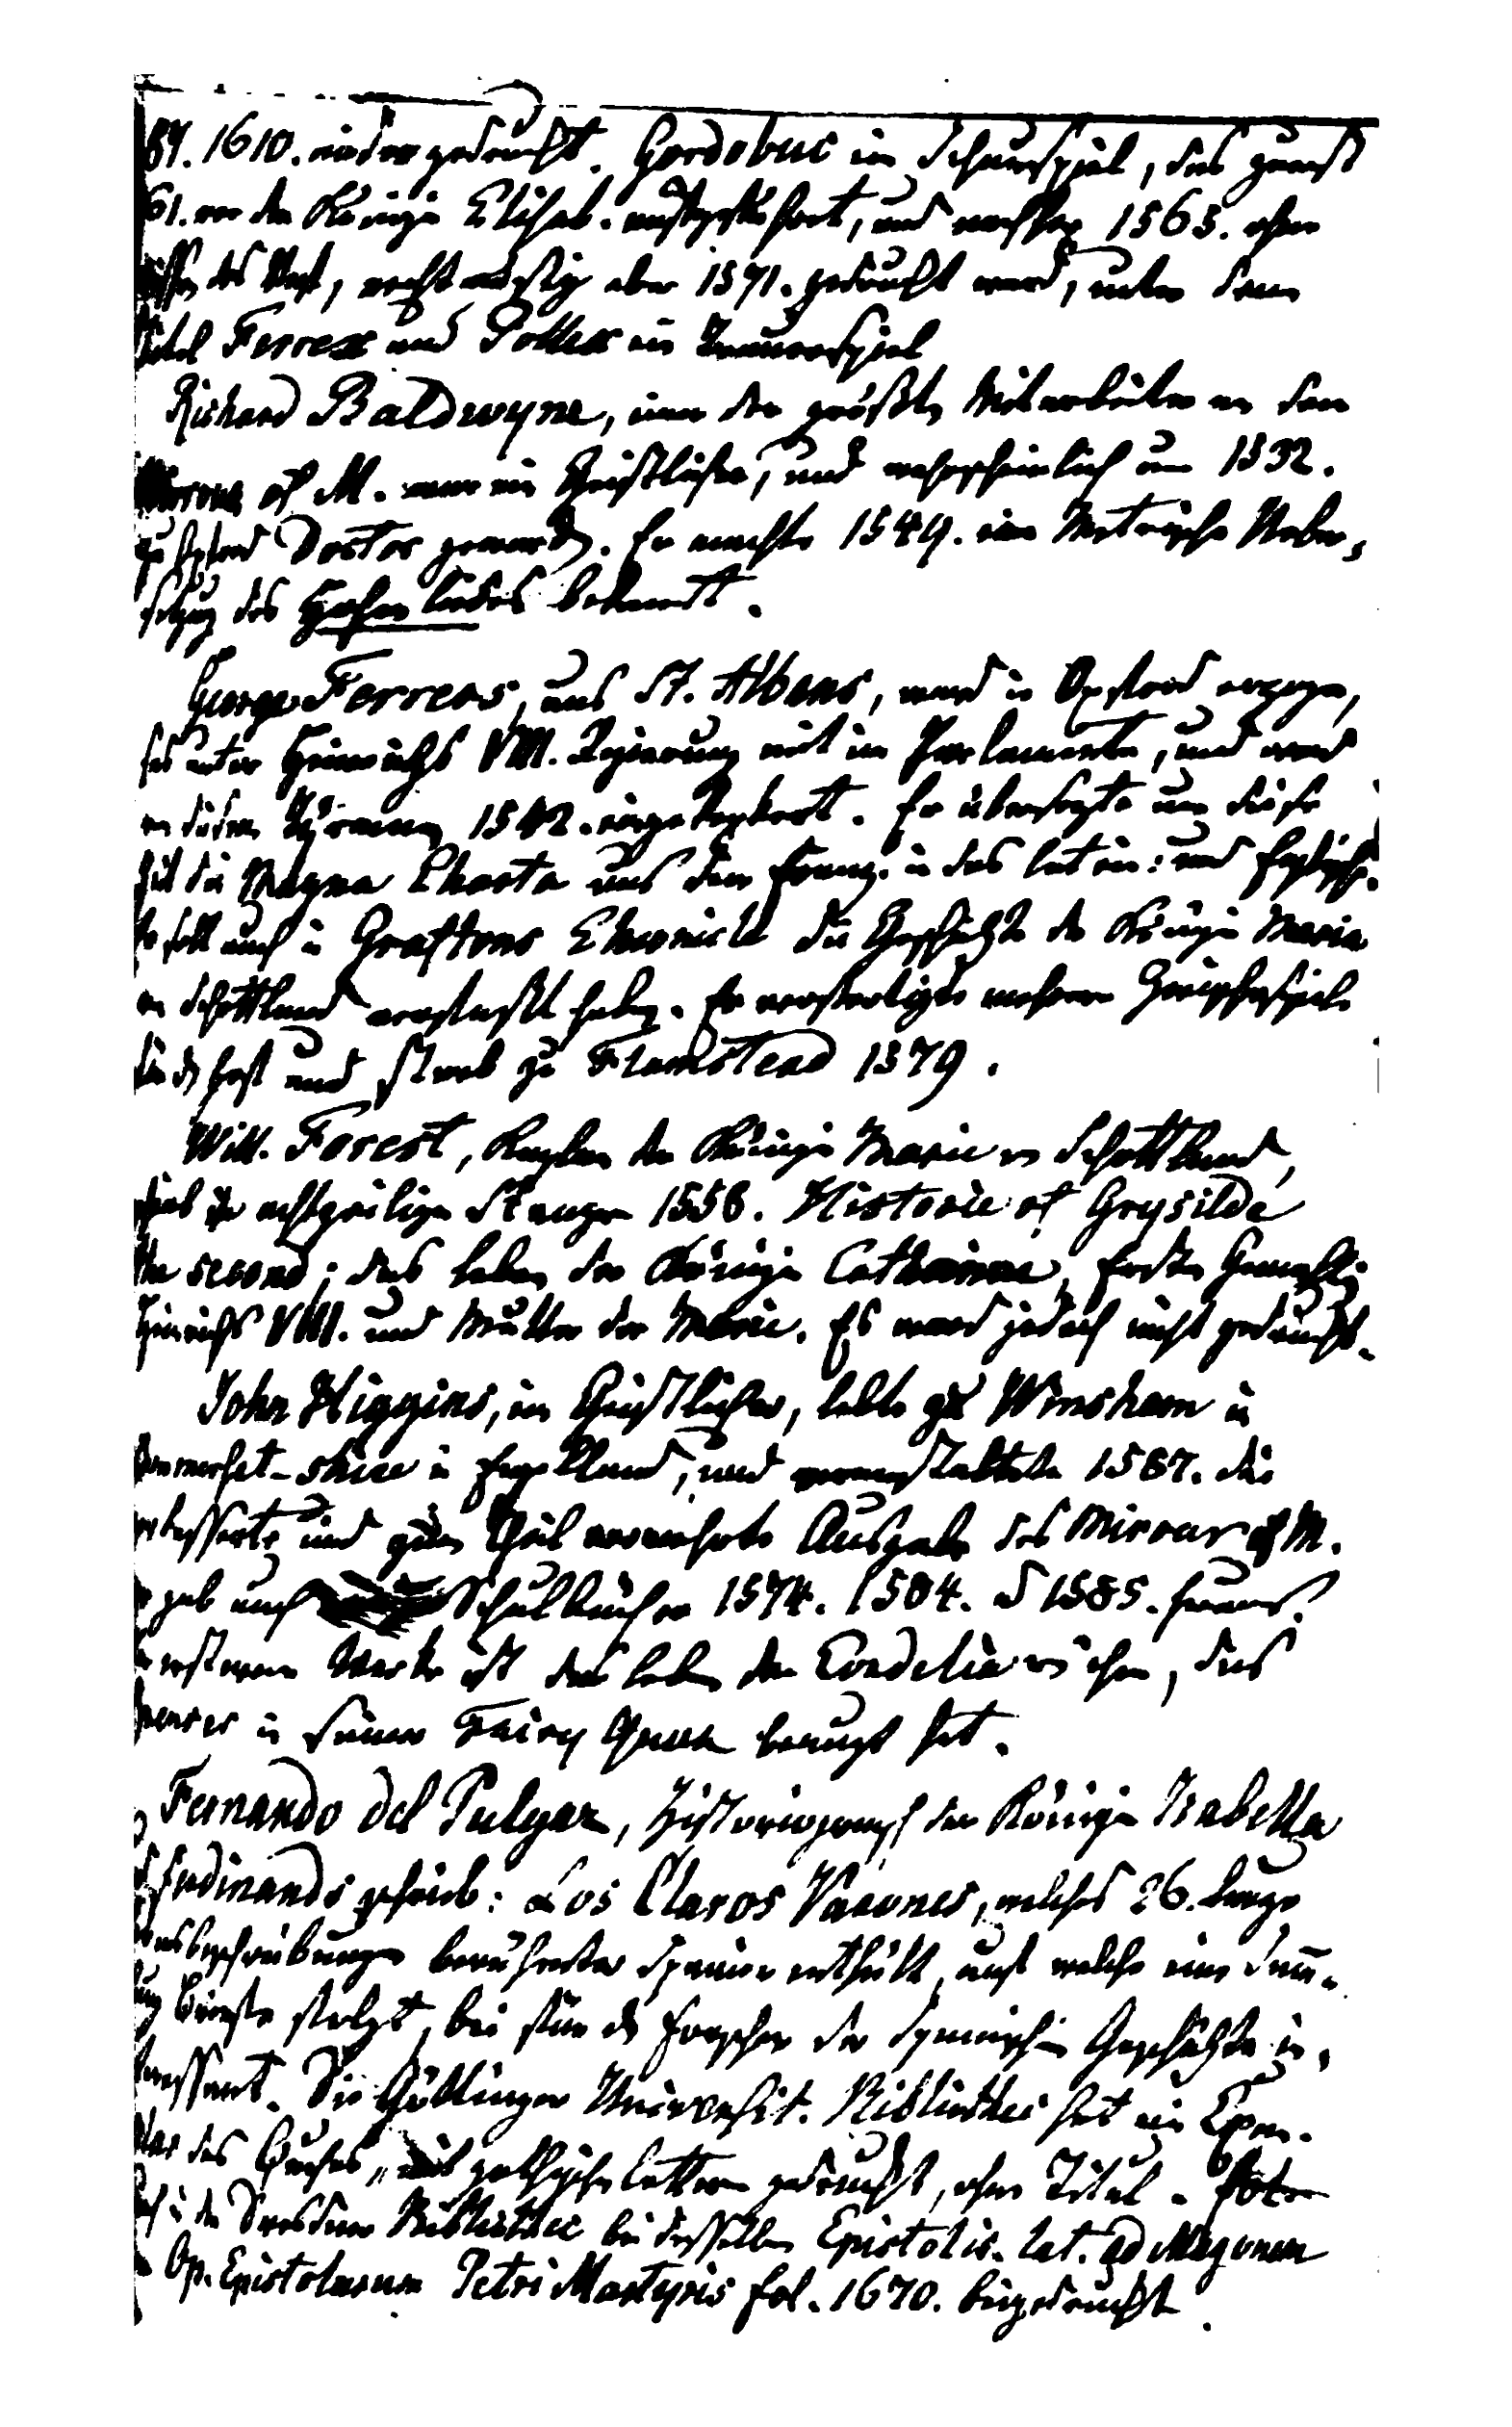 87. 1610. wieder gedruckt. Gordobuc ein Schauspiel, das zuerst
61. vor der Königin Elisab. aufgeführt, und nachher 1565. ohne
Wissen des Verf., rechtmäßig aber 1571. gedruckt ward, unter dem
Titel Ferrex und Pollex ein Trauerspiel
Richard Baldwyne, einer der größten Mitarbeiter an dem
Mirrour of M. war ein Geistlicher, und wahrscheinlich um 1532.
zu Oxford Doctor geworden. Er machte 1549. eine Metrische Ueber,
setzung des Hohen Liedes bekannt.
George Ferrers, aus St. Albans, ward in Oxford erzogen,
saß unter Heinrichs VIII. Regierung mit im Parlamente, und ward
von diesem Tyrannen 1542. eingekerkert. Er übersetzte um diese
Zeit die Magna Charta aus dem Franz. in das Latein: und Englische.
Er soll auch in Graftons Chronicle die Geschichte der Königin Maria
von Schottland verfaßt haben. Er verfertigte mehrere
und starb zu Flamstead 1579.
Will. Forest, Kaplan der Königin Marie v Schottland,
schrieb in achtzeiligen Stanzen 1558. Historie of Grysilde
the second; das Leben der Königin Catharine, erster Gemahlin
Heinrichs VIII. und Mutter der Marie. Es ward jedoch nicht gedruckt.
John Higgins, ein Geistlicher, lebte zu Winsham in
Sommerset-shire in Engelland, und veranstaltete 1587. die
verbesserte und zum Theil vermehrte Ausgabe des Mirrour of M.
Er gab auch Schulbücher 1574. 1584. u 1585. heraus.
In ersterem Werke ist das Leben der Cordelia v ihm, das
Spenser in seiner Fairy Queen benuzt hat.
Fernando del Pulgar, Historiograph der Königin Isabella
Ferdinands schrieb: Los Claros Varones, welches 26. kurze
Lebensbeschreibungen berühmter Spanier enthält, auf welche eine Sam̄-
lung Briefe folgt, die für den Forscher der Spanischen Geschichte in,
teressant. Die Göttinger Universit. Bibliothec hat ein Exem-
plar des Buches, mit gothischen Lettern gedruckt, ohne Titel.
auch in der Dresdner Bibliothec bei desselben Epistolis. lat. ad Magonem
Op. Epistolarum Petri Martyris fol. 1670. beigedruckt.